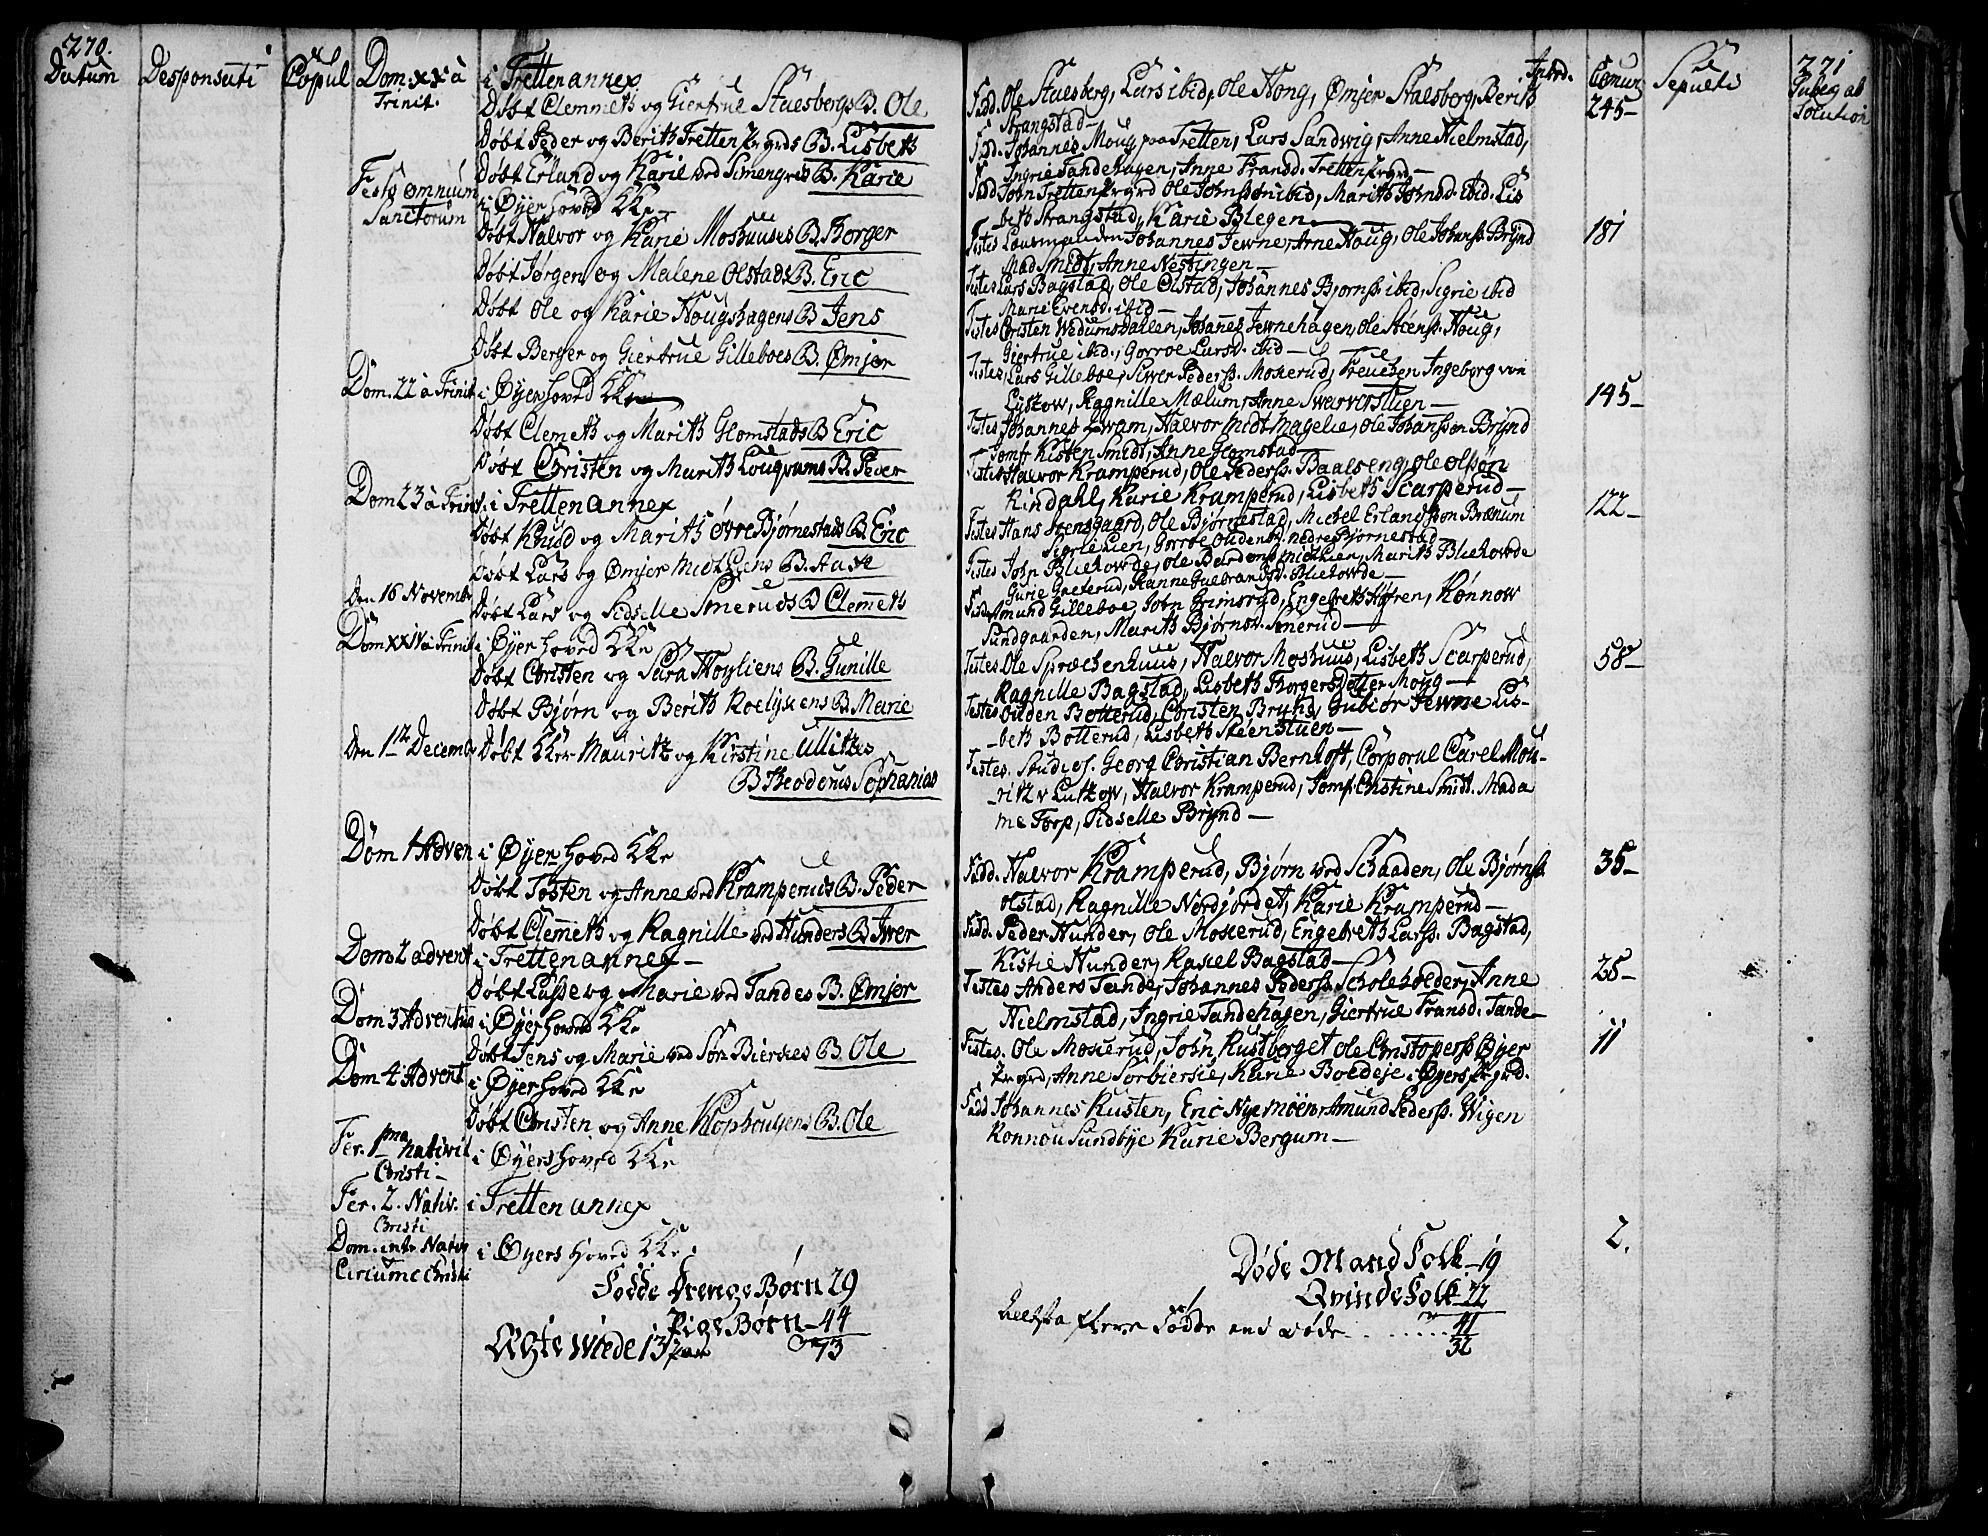 270.
Datum Desponsati Copul Dom. XX a Trinit. i Tretten annex
Døbt Clemmeth og Giertrue Stalsbergs B. Ole
Døbt Peder og Berith Tretten Prgrds B. Lisbeth
Døbt Erland og Karie ved Simengrds B. Karie
Festo omnium Sanctorum i Øyer hoved KKe
Døbt Halvor og Karie Moshuuses B. Borger
Døbt Jørgen og Malene Olstads B. Eric
Døbt Ole og Karie Hougshagens B. Jens
Døbt Berger og Giertrue Gilleboes B. Ømjør
Dom. 22 a Trinit i Øyer hoved KKe
Døbt Clemeth og Marith Glomstads B Eric
Døbt Christen og Marith Lougvams B. Peder
Dom 23 a Trinit. i Tretten annex
Døbt Knud og Marith øvre Bjørnestads B. Eric
Døbt Lars og Ømjør Midtliens B. Aase
Den 16 Novembr Døbt Lars og Sidselle Smeruds B Clemeth
Dom XXIV a Trinit i Øyer hoved KKe
Døbt Christen og Sara Høyliens B. Gunille
Døbt Bjørn og Berith Roelykens B. Marie
Den 1ste Decembr Døbt Skr Mauritz og Kirstine Ullitzes
B Theodorus Sophanias
Dom 1 Adven i Øyer hoved KKe
Døbt Tosten og Anne ved Kramperuds B. Peder
Døbt Clemeth og Ragnille ved Hunders B. Iwer
Dom 2 advent i Tretten annex
Døbt Lasse og Marie ved Tandes B. Ømjør
Dom 3 Adventus i Øyer hoved KKe
Døbt Jens og Marie ved Sør Bierkes B. Ole
Dom 4 Advent i Øyer hoved KKe
Døbt Christen og Anne Klophoulsens B. Ole
Fer. 1ma Nativit Christi i Øyers hoved KKe
Fer. 2. Nativ. Christi i Tretten annex
Dom. inter Nativ Circumc Christi i Øyers hoved KKe
Fødde Drenge Børn 29
Pige Børn 44
73
Ægte Wiede 13 par
Introd. Comun Sepulti 271
Publeg absolution
Fadd. Ole Stalsberg, Lars ibid, Ole Hong, Ømjør Stalsberg, Berith 245
Strangstad
Fad. Johannes Moug, paa Tretten, Lars Sandwig, Anne Hielmstad,
Ingrie Tandehagen, Anne Fransd. Tretten Prgrd
Fadd John Tretten Prgrd Ole Johnssøn ibid, Marith Johnsd. ibid. Lis
beth Strangstad, Karie Blegen
Testes Lænsmanden Johannes Jewne, Arne Houg, Ole Johanss. Brynd 181
Mad Smidt, Anne Nestingen
Testes Lars Bagstad, Ole Olstad, Johannes Bjørnss. ibid, Sigrie ibid
Marie Evensd. ibid
Testes Christen Wedumsdallen, Johannes Jewnehagen, Ole Steenss. Houg,
Giertrue ibid, Gorroe Larsd. ibid
Testes, Lars Gilleboe, Siwer Pederss. Moxerud, Freuchen Ingeborg von
Lützow, Ragnille Mælum, Anne Swarverstuen 145
Testes Johannes Kwam, Halvor Midt Magelie, Ole Johanssøn Brynd
Jomf. Kisten Smidt, Anne Glomstad
Testes Halvor Kramperud, Ole Pederss. Baalseng, Ole Olssøn
Rindahl, Karie Kramperud, Lisbeth Scarperud 122
Testes Hans Stensgaard, Ole Bjørnestad, Michel Erlandssøn Brænum
Sigrie Lien, Gorroe Oudensd. nedre Bjørnestad
Testes John Bliehowde, Ole Bardoms Midtlien, Marith Bliehowde
Gurie Gaeterud, Hanne Gulbrandsd. Bliehowde
Fad: Amund Gilleboe, John Grimsrud, Engebreth Høfren, Rønnow
Sundgaarden, Marith Bjørnsd. Smerud
Testes Ole Sprækenhuus, Halvor Moshuus, Lisbeth Scarperud, 58
Ragnille Bagstad, Lisbeth Thorgersdotter Moug
Testes Ouden Botterud, Christen Brynd, Gubiør Jewne Lis-
beth Botterud, Lisbeth Steenstuen
Testes. Studios. Georg Christian Bernhoft, Corporal Carel Mou-
ritz v Lützow, Halvor Kramperud, Jomf. Christine Smidt. Mada
me Torp, Sidselle Brynd
Fadd. Halvor Kramperud, Bjørn ved Schaaden, Ole Bjørnss. 35
Olstad, Ragnille Nordjordet, Karie Kramperud
Fadd. Peder Hunder, Ole Moxerud, Engebreth Larss. Bagstad,
Kistie Hunder, Rakel Bagstad 25
Testes Anders Tande, Johannes Pederss. Scholeholder, Anne
Hielmstad, Ingrie Tandehagen, Giertrue Fransd. Tande
Testes. Ole Moxerud, John Rustberget Ole Christopherss Øyer 11
Prgrd, Anne Sørbierkie, Karie Boedeje i Øyers Prgrd.
Fadd Johannes Rusten, Eric Nyemoen, Amund Pederss. Wigen
Ronnou Sundbye Karie Bergum
2.
Døde Mand Folk 19
Qvinde Folk 22
41
Altsaa flere Fødde end døde 32